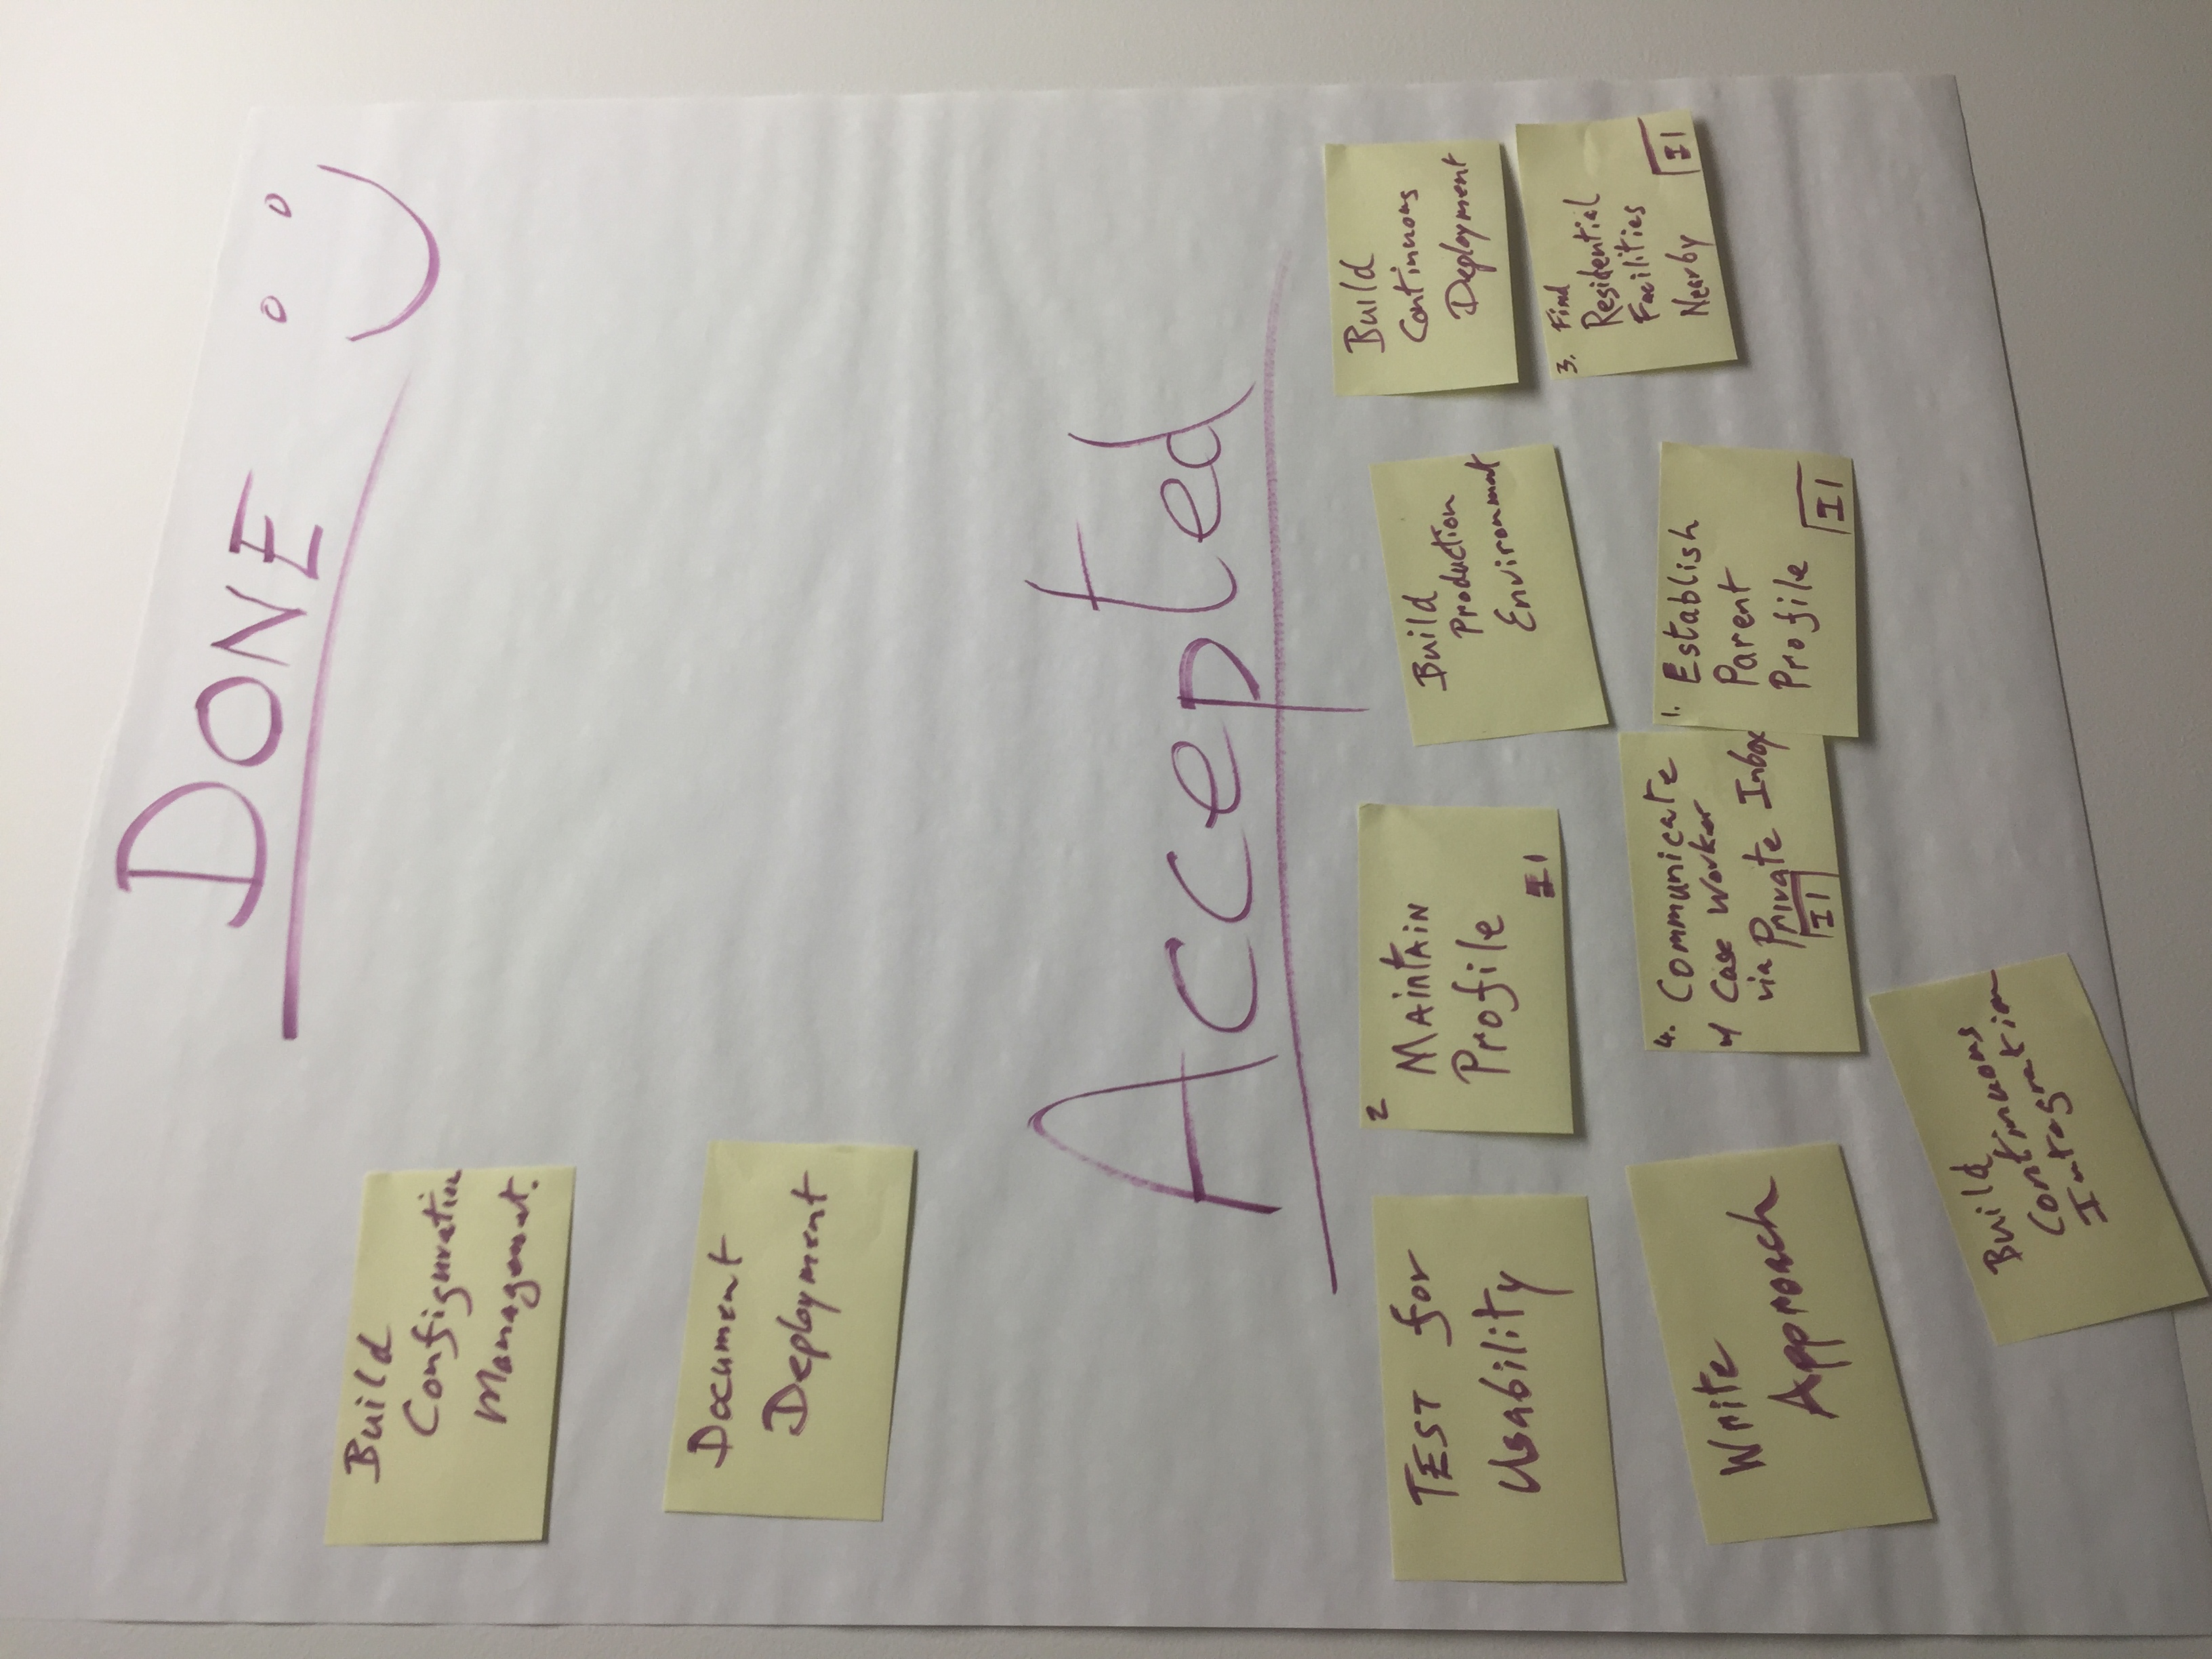 DONE
Build
Configuration
Management.
Document
Deployment
Accepted
TEST for
Usability
2
MAintAiN
Profile
I1
Build
Production
Environment
Build
Continuous
Deployment
3. Find
Residential
Facilities
Nearby
I1
Write
Approach
4. Communicate
w/ Case Worker
via Private Inbox
I1
1. Establish
Parent
Profile
I1
Build
Continuous
Integration